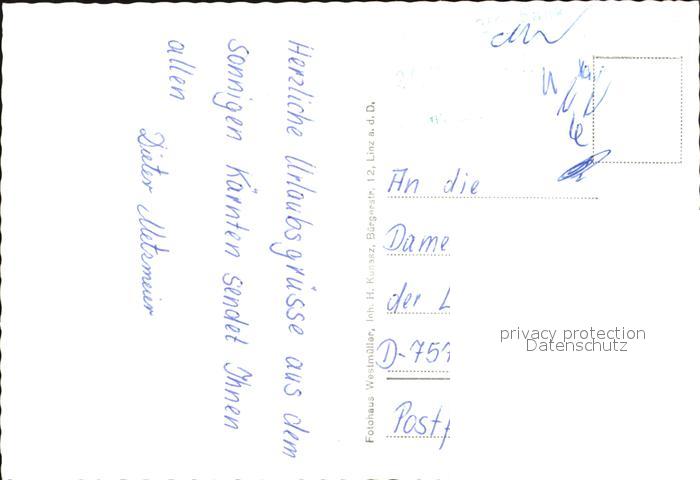 Herzliche Urlaubsgrüsse aus dem
sonnigen Kärnten sendet Ihnen
allen
Dieter Metzmeier
Fotohaus Westmüller, Inh. H. Kunasz, Bürgerstr. 12, Linz a. d. D.
An die
Dame
der L
D-751
Postf
privacy protection
Datenschutz